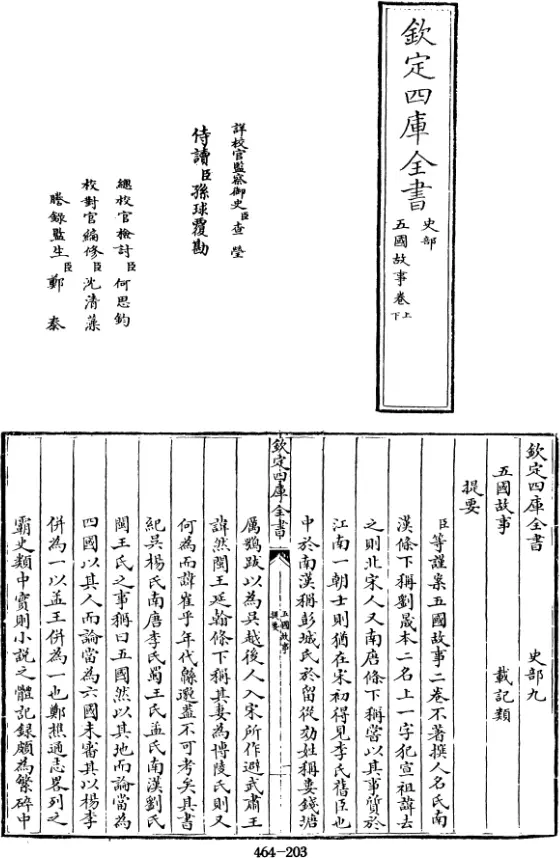 欽定四庫全書
史部
五國故事卷上下
詳校官監察御史臣查瑩
侍讀臣孫球覆勘
總校官檢討臣何思鈞
校對官編修臣沈清藻
謄錄監生臣鄭泰
欽定四庫全書 史部九
五國故事 載記類
提要
臣等謹案五國故事二卷不著撰人名氏南
漢條下稱劉晟本二名上一字犯宣祖諱去
之則北宋人又南唐條下稱嘗以其事質於
江南一朝士則猶在宋初得見李氏舊臣也
中於南漢稱彭城氏於留從効姓稱婁錢塘
欽定四庫全書
五國故事
提要
厲鶚跋以為吳越後人入宋所作避武肅王
諱然閩王延翰條下稱其妻為博陵氏則又
何為而諱崔乎年代緜邈蓋不可考矣其書
紀吳楊氏南唐李氏蜀王氏孟氏南漢劉氏
閩王氏之事稱曰五國然以其地而論當為
四國以其人而論當為六國未審其以楊李
併為一以孟王併為一也鄭樵通志畧列之
霸史類中實則小說之體記録頗為繁碎中
464-203